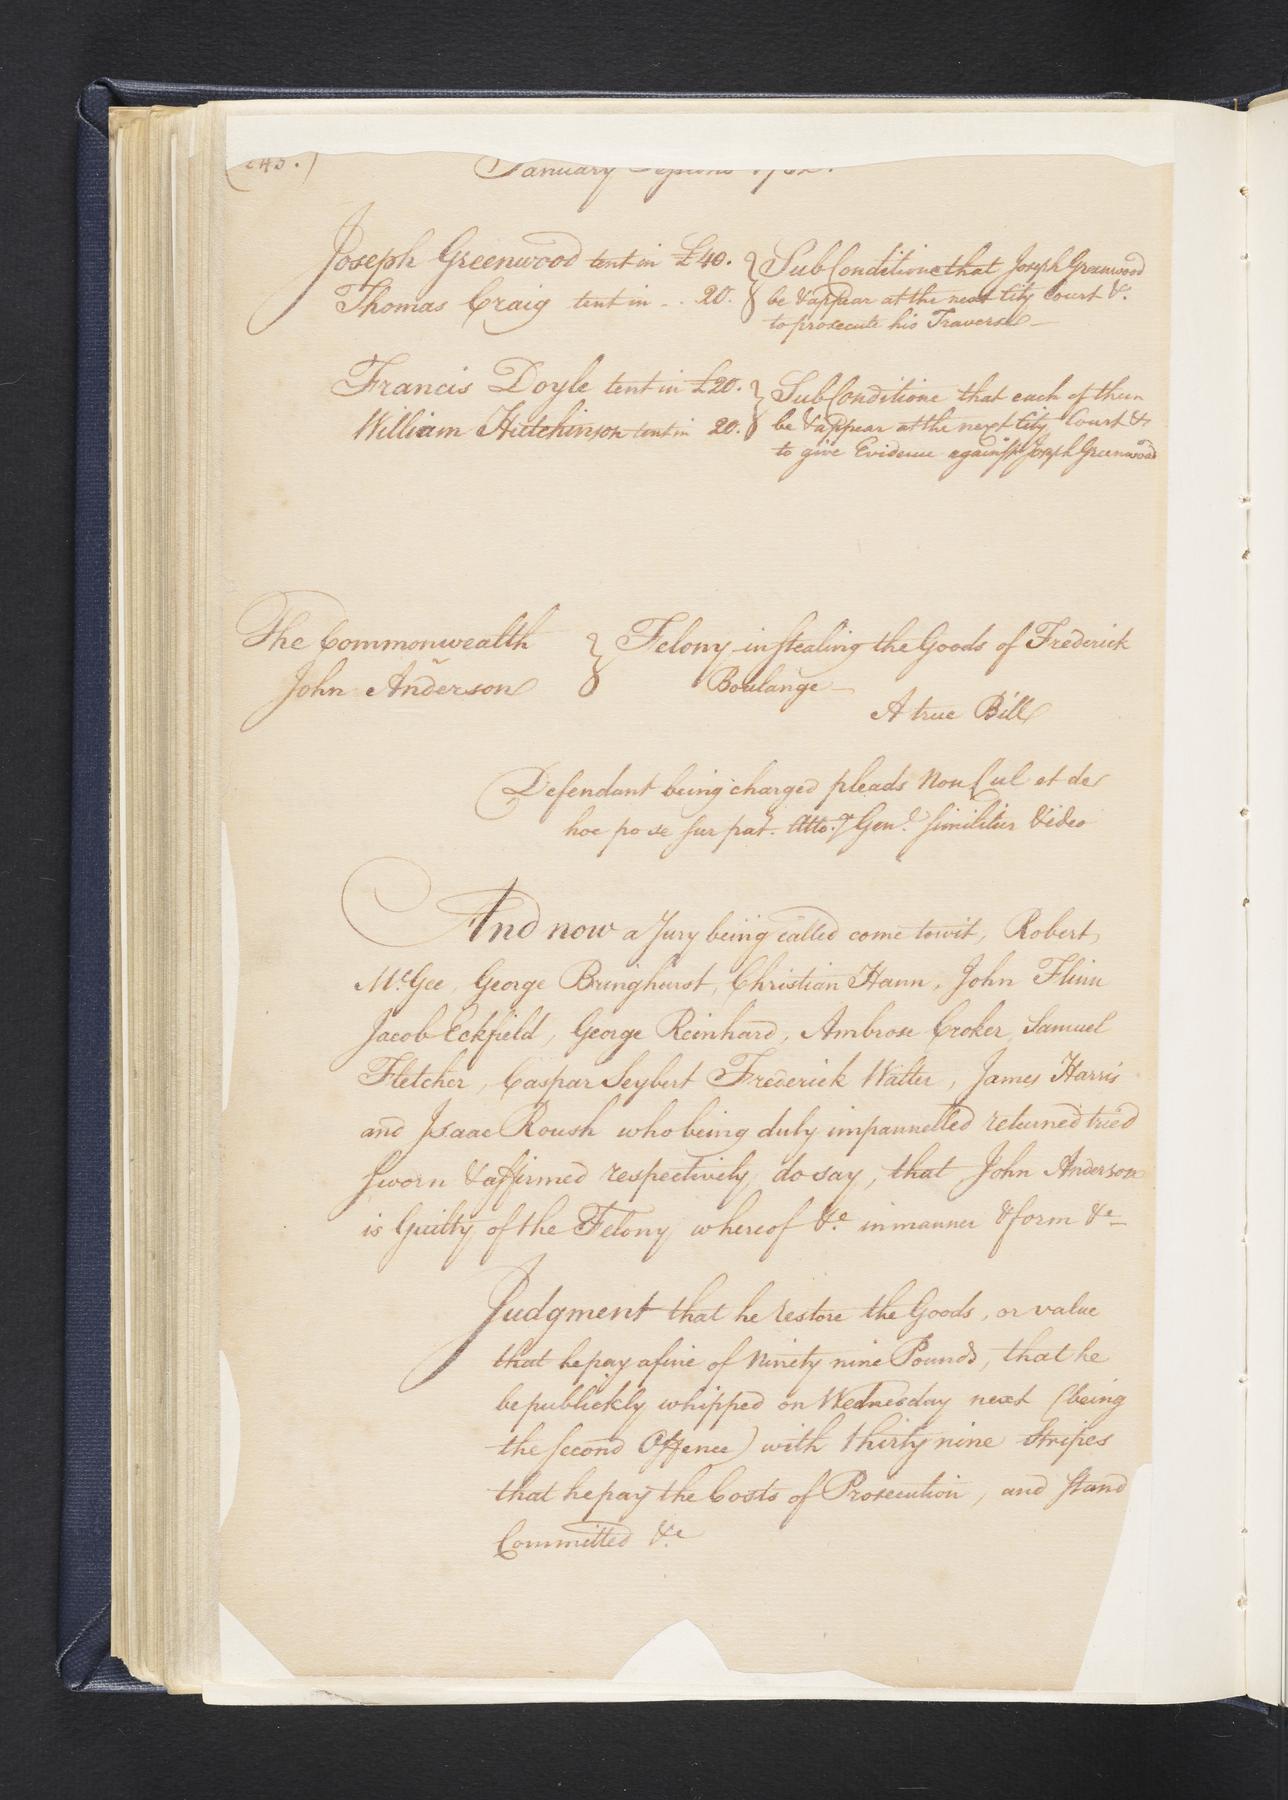 January Sessions
Joseph Greenwood tent in £40. } Sub Conditione that Joseph Greenwood
Thomas Craig tent in - . 20. } be & appear at the next City Court &c.
to prosecute his Traverse —
Francis Doyle tent in £20. } Sub Conditione that each of them
William Hutchinson tent in 20. } be & appear at the next City Court &c
to give Evidence against Joseph Greenwood
The Commonwealth } Felony in stealing the Goods of Frederick
John Anderson } Boulange —
A true Bill
Defendant being charged pleads Non Cul et de
hoc po se sur pat. Atto.y Gen.l similiter Video
And now a Jury being called come towit, Robert
McGee, George Bringhurst, Christian Hann, John Flinn
Jacob Eckfield, George Reinhard, Ambrose Croker, Samuel
Fletcher, Caspar Seybert Frederick Walter, James Harris
and Isaac Roush who being duly impannelled returned tried
sworn & affirmed respectively do say, that John Anderson
is Guilty of the Felony whereof &c. in manner & form &c —
Judgment that he restore the Goods, or value
that he pay a fine of Ninety nine Pounds, that he
be publickly whipped on Wednesday next (being
the second Offence) with thirty nine Stripes
that he pay the Costs of Prosecution, and stand
Committed &c